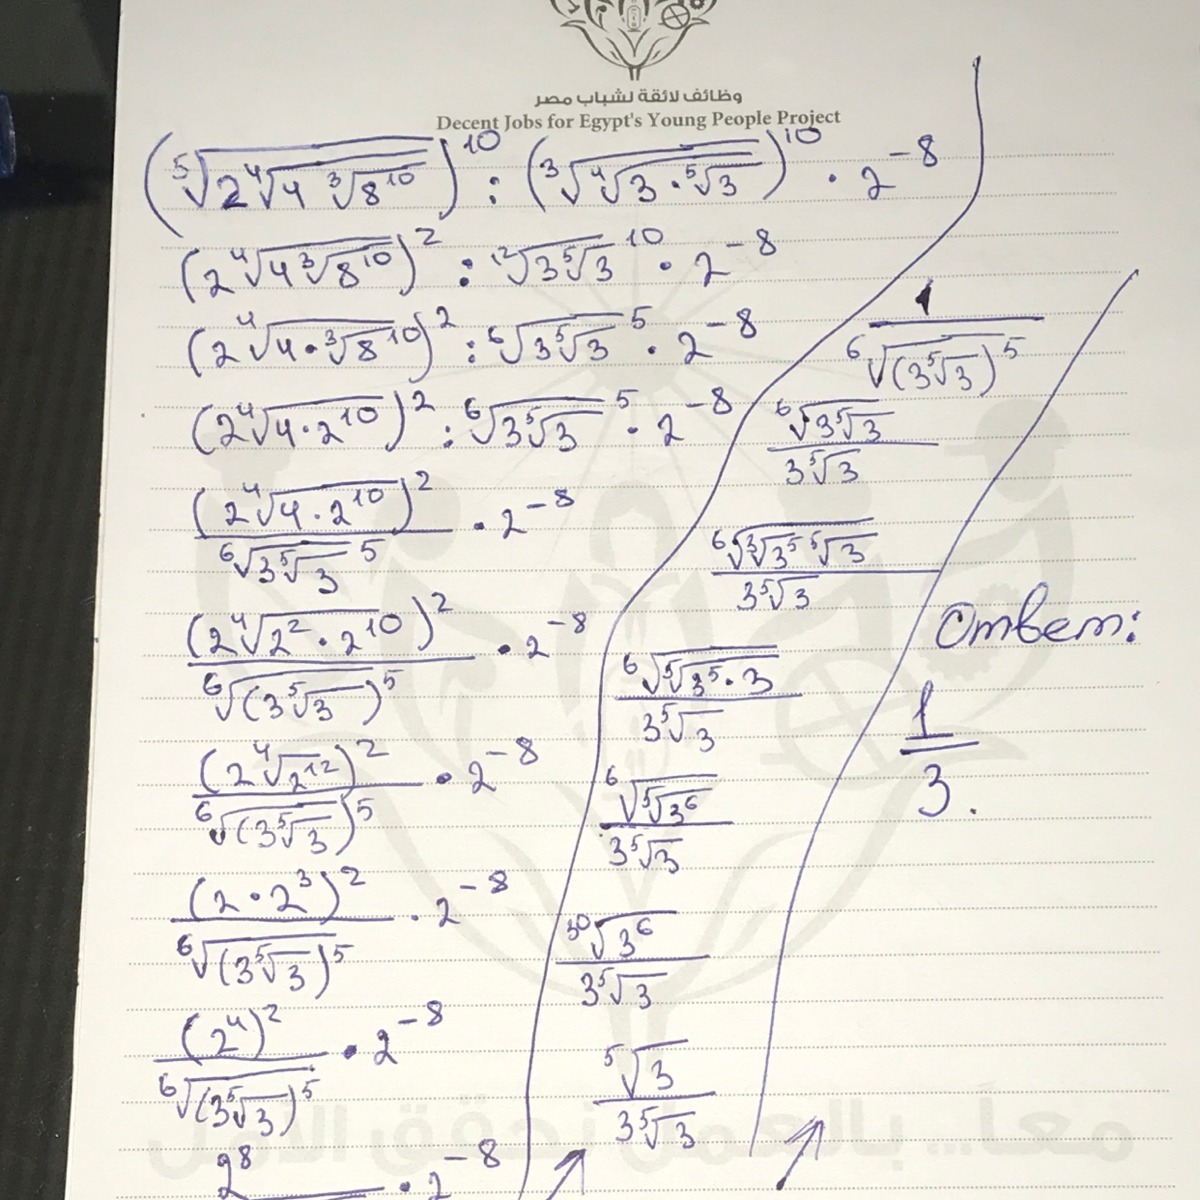 وظائف لائقة لشباب مصر
Decent Jobs for Egypt's Young People Project
(⁵√(2⁴√(4 ³√(8¹⁰))))¹⁰ : (³√(⁴√(3 · ⁵√3)))¹⁰ · 2⁻⁸
(2 ⁴√(4 ³√(8¹⁰)))² : ¹²√(3 ⁵√3)¹⁰ · 2⁻⁸
(2 ⁴√(4 · ³√8¹⁰))² : ⁶√(3 ⁵√3)⁵ · 2⁻⁸
(2 ⁴√(4 · 2¹⁰))² : ⁶√(3 ⁵√3)⁵ · 2⁻⁸
(2 ⁴√(4 · 2¹⁰))² / ⁶√(3 ⁵√3)⁵ · 2⁻⁸
(2 ⁴√(2² · 2¹⁰))² / ⁶√((3 ⁵√3)⁵) · 2⁻⁸
(2 ⁴√(2¹²))² / ⁶√((3 ⁵√3)⁵) · 2⁻⁸
(2 · 2³)² / ⁶√((3 ⁵√3)⁵) · 2⁻⁸
(2⁴)² / ⁶√((3 ⁵√3)⁵) · 2⁻⁸
2⁸ · 2⁻⁸
1 / ⁶√((3 ⁵√3)⁵)
⁶√(3 ⁵√3) / 3 ⁵√3
⁶√(⁵√(3⁵) ⁵√3) / 3 ⁵√3
⁶√(⁵√(3⁵ · 3)) / 3 ⁵√3
⁶√(⁵√(3⁶)) / 3 ⁵√3
³⁰√(3⁶) / 3 ⁵√3
⁵√3 / 3 ⁵√3
Ответ:
1 / 3.
معا.. بالعمل نحقق الأمل